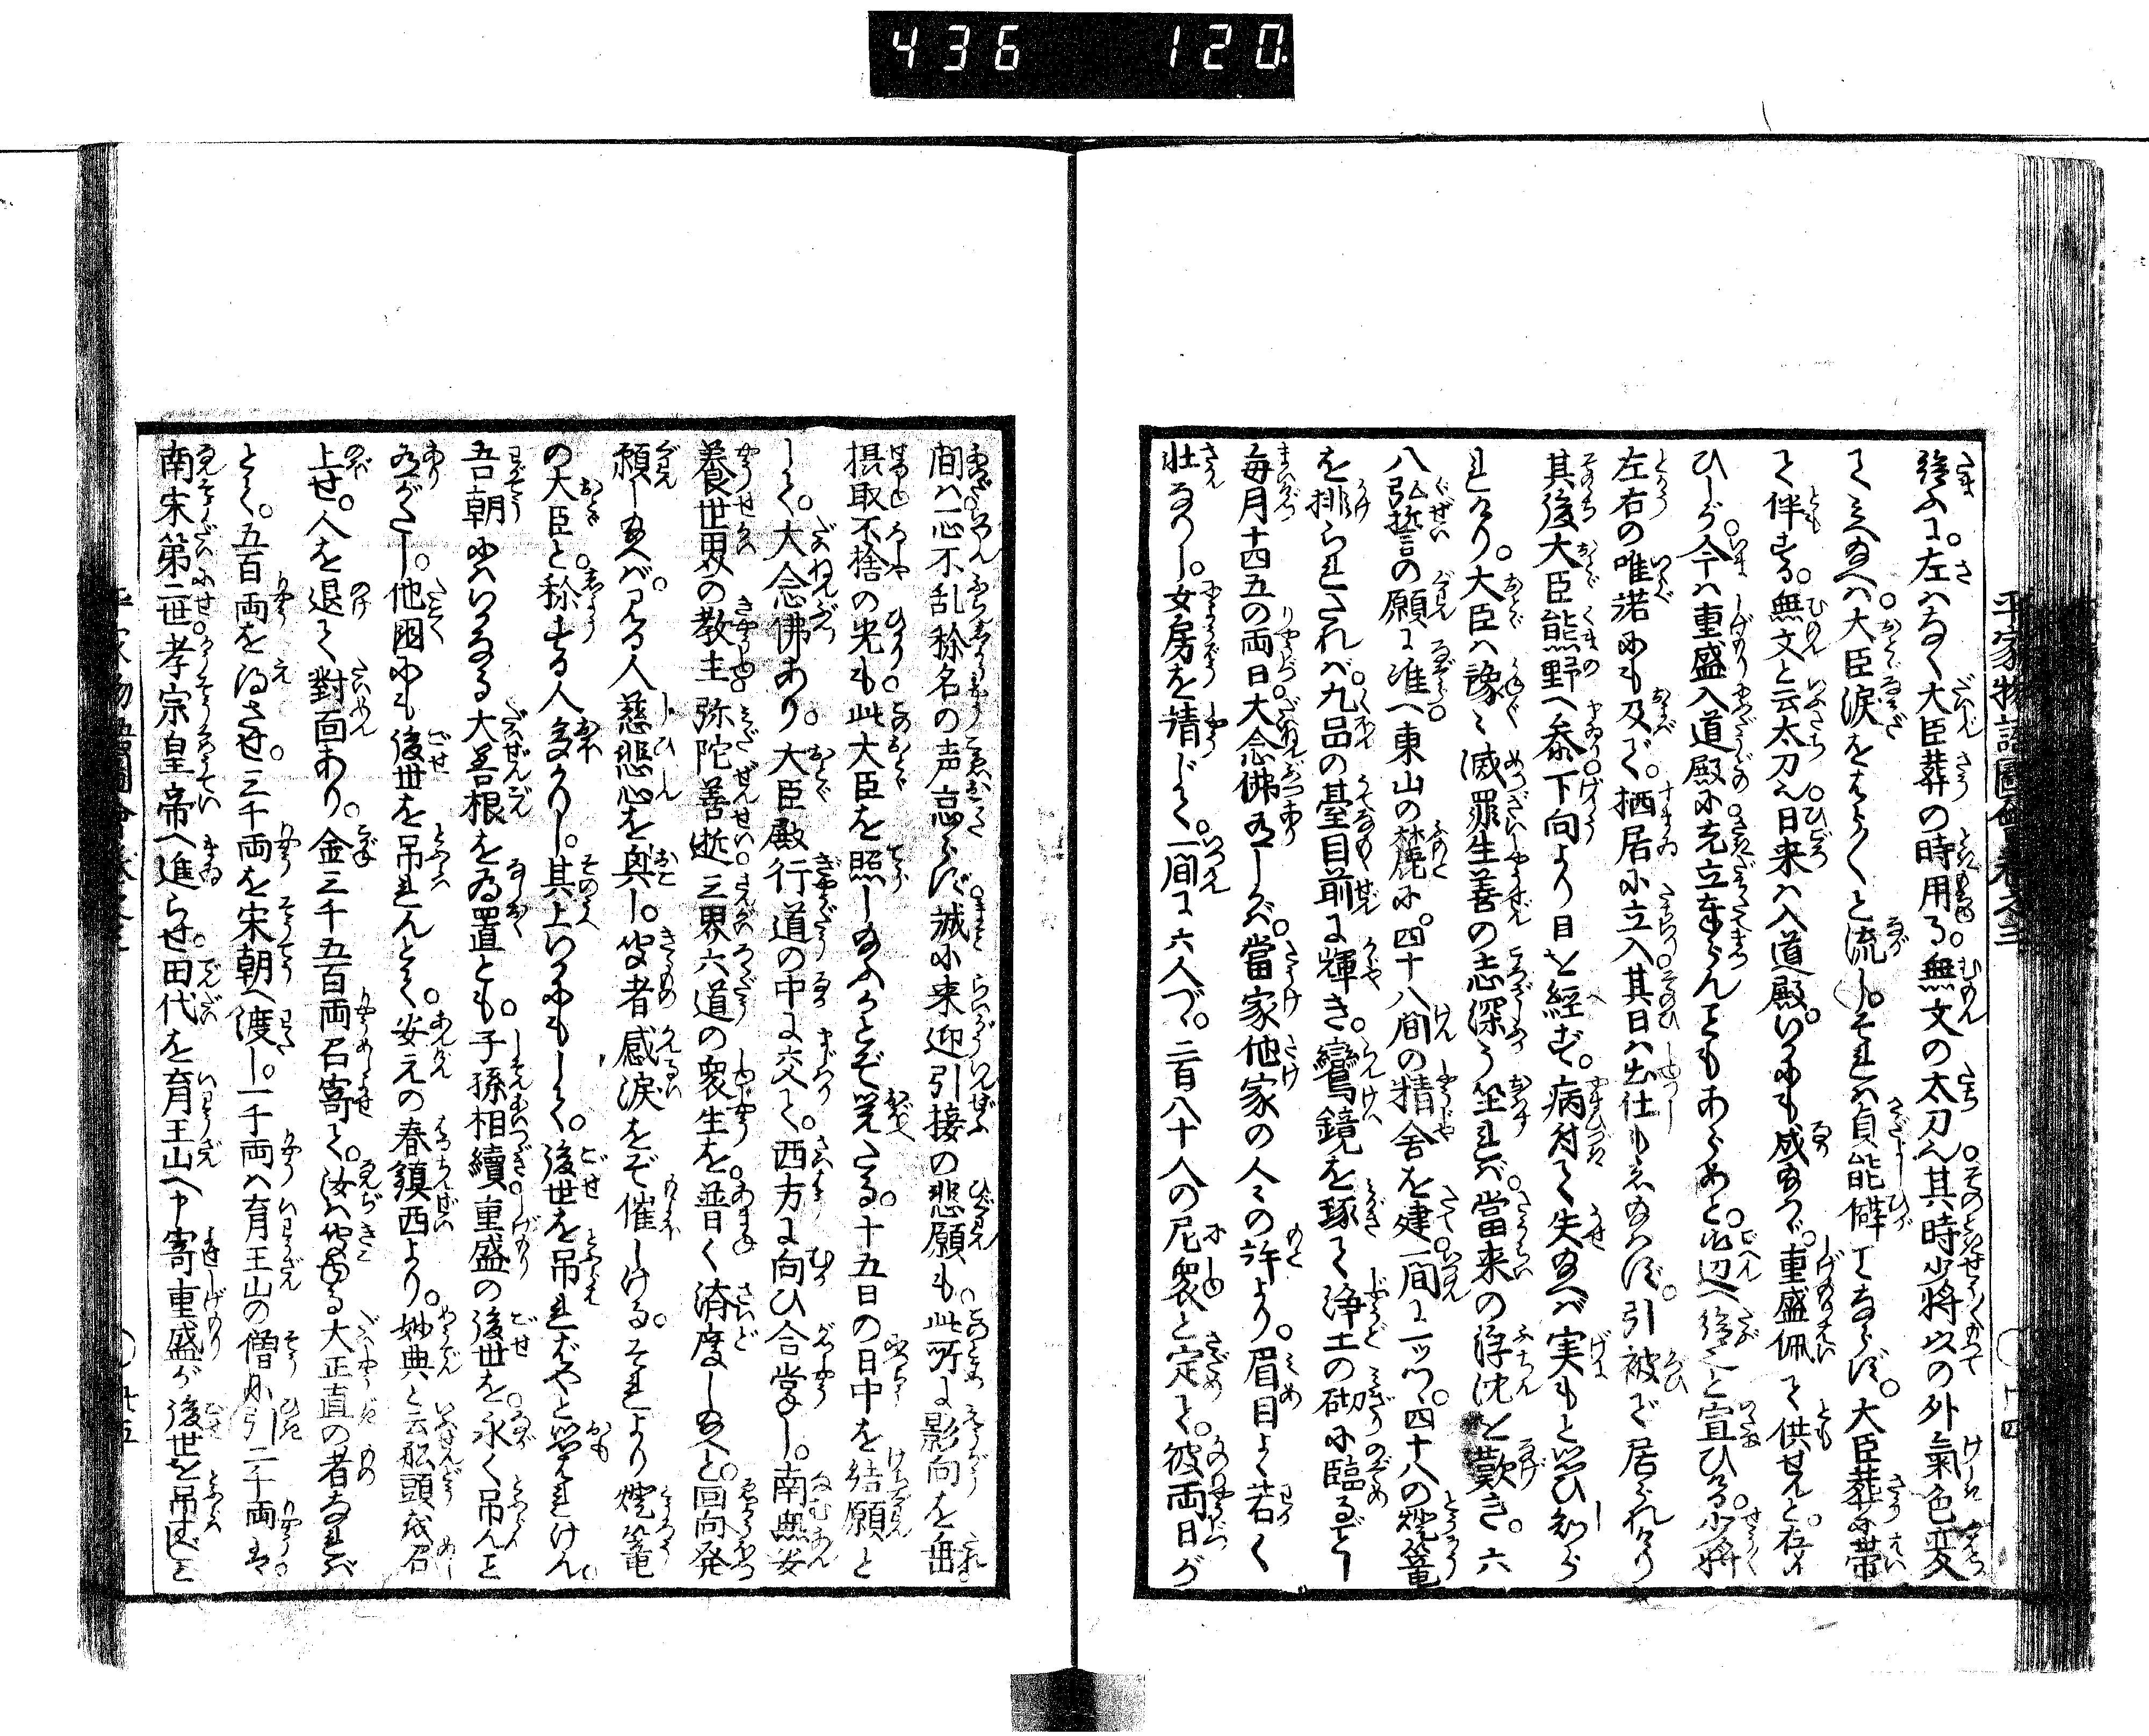 436 120
平家物語圖會 卷之三
給ふに。左はなく大臣葬の時用る。無文の太刀也其時少将以の外氣色変
て見給へば大臣涙をはら〳〵と流し。それは貞能が僻事ならず。大臣葬に帯
て伴する。無文と云太刀也日来は入道殿。いかにも成給はゞ。重盛佩て供せんと。存じ
ひしが。今は重盛入道殿に先立奉らんともあらめと。御辺へ給ると宣ひける。少将
左右の唯諾にも及ず。栖居に立入其日は出仕もし給はず。引被で居られけり
其後大臣熊野へ参下向より日を経ず。病付て失給へば実もと思ひ知ら
れけり。大臣は豫々滅罪生善の志深う坐れば。當来の浮沈を歎き。六
八弘誓の願に准へ東山の麓に。四十八間の精舎を建一間に一ッヅ。四十八の燈篭
を掛られされば。九品の臺目前に輝き。鸞鏡を琢て浄土の砌に臨るごとし
毎月十四五の両日。大念佛有しかば。當家他家の人々の許より。眉目よく若く
壮なりし。女房を請じて。一間に六人ヅ。二百八十八の尼衆と定て。彼両日が
間は一心不乱称名の声怠らず誠に来迎引接の悲願も。此所に影向を垂
摂取不捨の光も此大臣を照し給ふかとぞ覚ける。十五日の日中を結願と
して。大念佛あり。大臣殿行道の中に交て。西方に向ひ合掌し。南無安
養世界の教主弥陀善逝三界六道の衆生を。普く済度し給へと。回向発
願し給へば。みる人慈悲心を興し。聞者感涙をぞ催しける。それより燈篭
の大臣と。称する人多かりし。其上いかにもして。後世を吊ればやと思はれけん。
吾朝にはいかなる大善根をし置とも。子孫相續重盛の後世を。永く吊んこと
有がたし。他国にも後世を吊れんとて。安元の春鎮西より。妙典と云舩頭を召
上せ。人を退て對面あり。金三千五百両召寄て。汝は聞ゆる大正直の者なれば
とて。五百両を得させ三千両を宋朝へ渡し。一千両は育王山の僧に引二千両は
南宋第二世孝宗皇帝へ進らせ。田代を育王山へ申寄重盛が後世を吊すべしと